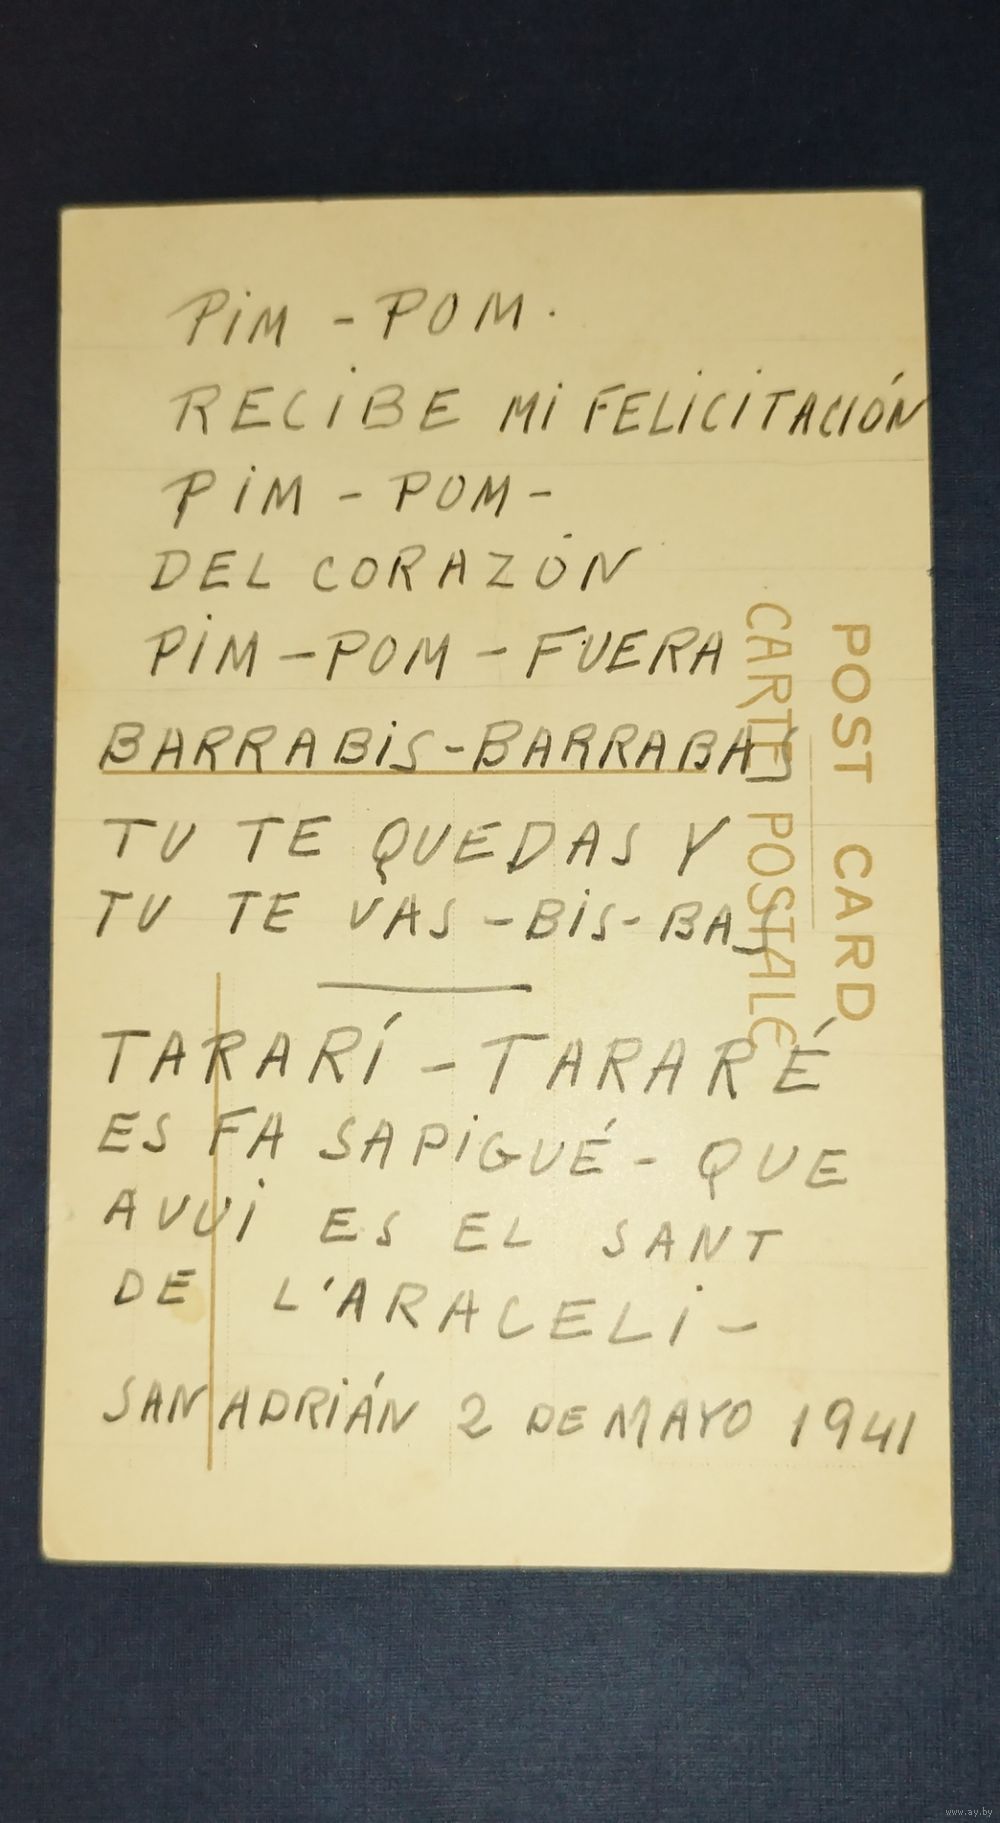 PiM - POM.
RECiBE Mi FELiCiTACIÓN
PiM - POM -
DEL CORAZÓN
PiM - POM - FUERA
BARRABiS - BARRABAS
TU TE QUEDAS Y
TU TE VAS - BiS - BAS
TARARÍ - TARARÉ
ES FA SAPiGUÉ - QUE
AVUi ES EL SANT
DE L'ARACELi -
SAN ADRiÁN 2 DE MAYO 1941
POST CARD
CARTE POSTALE
www.ay.by